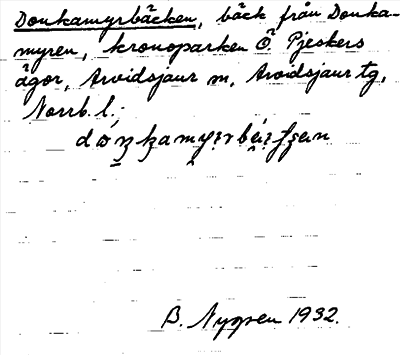 Donkamyrbäcken, bäck från Donka-
myren, kronoparken Ö. Pjeskers
ägor, Arvidsjaur sn, Arvidsjaur tg,
Norrb. l.
B. Nygren 1932.